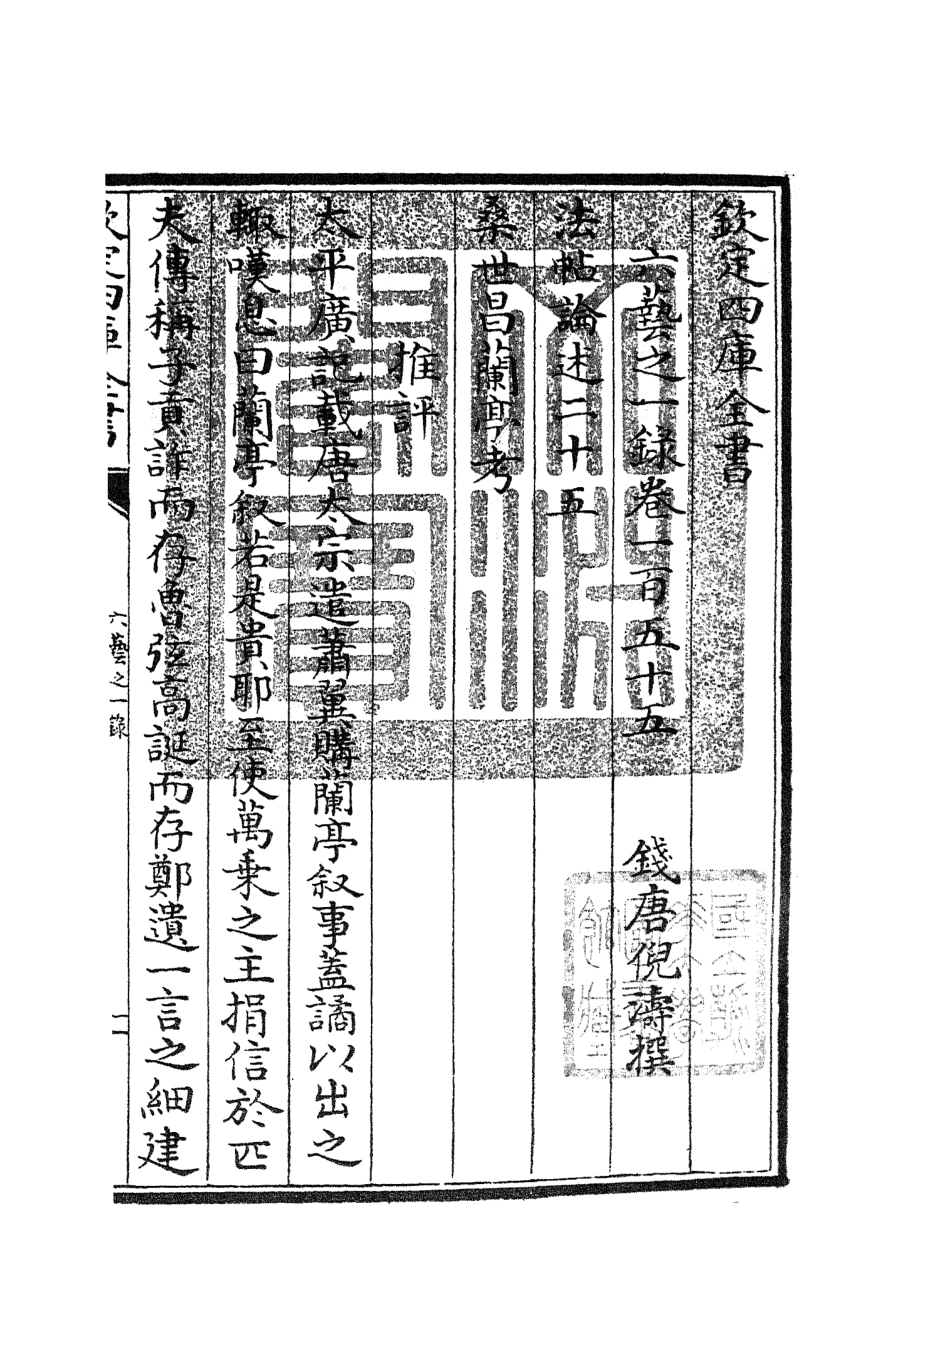 欽定四庫全書
六藝之一錄卷一百五十五
錢唐倪濤撰
法帖論述二十五
桑世昌蘭亭考
推評
太平廣記載唐太宗遣蕭翼購蘭亭叙事蓋譎以出之
輒嘆息曰蘭亭叙若是貴耶至使萬乗之主捐信於匹
夫傳稱子貢詐而存魯弦高誕而存鄭遺一言之細建
欽定四庫全書
六藝之一錄